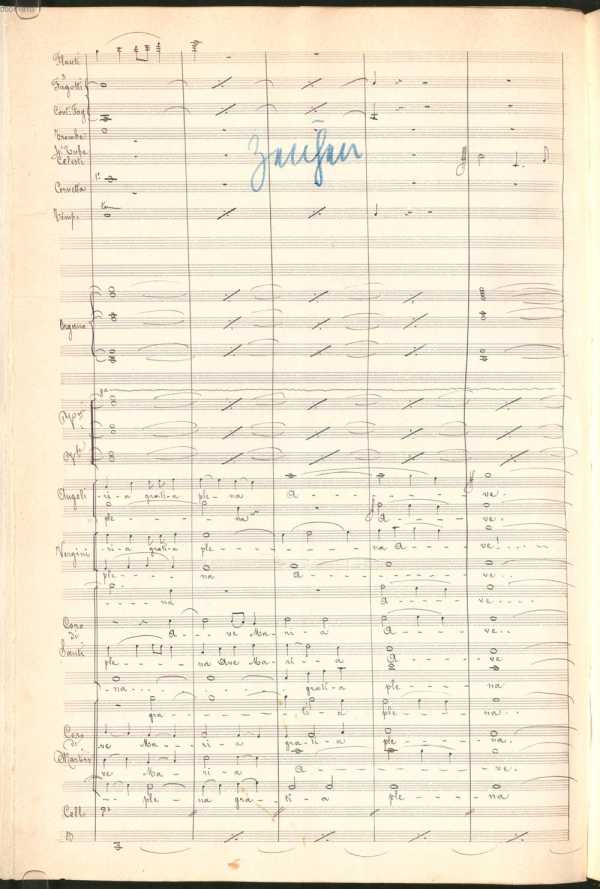 Flauti
Fagotti
Cont: Fag
Trombe
Tube
Celesti
Cornetta
Timp.
Organo
8ª
Angeli
-ri-a grati-a ple-na A - - - - - - ve..
ple - - - na A - - - - ve..
Vergini
-ri-a grati-a ple - - - - - - na A - - ve!....
ple - - - na A - - - - - - ve..
- - - na A - - - - ve....
Coro
di
Santi
A - - ve Ma - ri - a A - - - - ve..
ple - - - na Ave Ma - ri - a A - - - - ve
- na... grati-a ple - - - na
gra - - - - - ti - a ple - - - na..
Coro
di
Martiri
ve Ma - - - ri - a gra-ti-a ple - - - na..
ve Ma - ri - a A - - - - - - ve..
- - ple - na gra - ti - a ple - - - na
Cell.